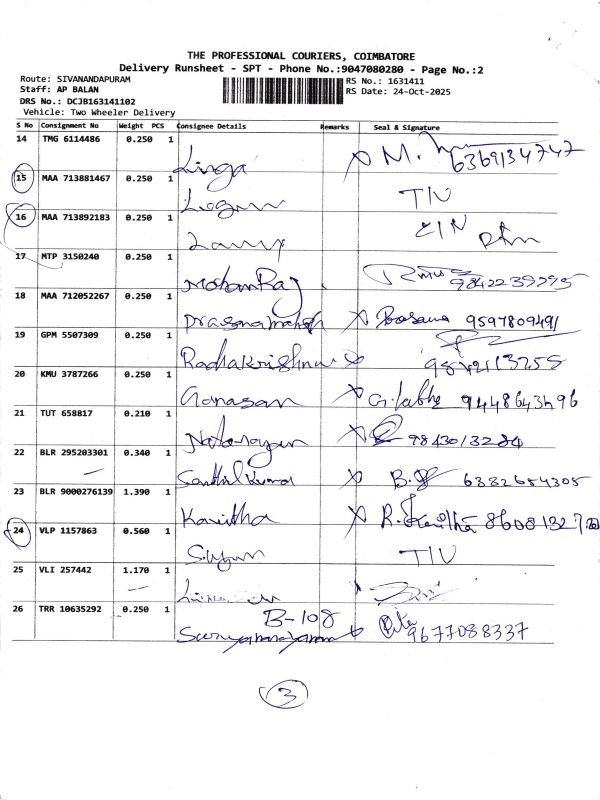 THE PROFESSIONAL COURIERS, COIMBATORE
Delivery Runsheet - SPT - Phone No.:9047080280 - Page No.:2
Route: SIVANANDAPURAM
Staff: AP BALAN
DRS No.: DCJB163141102
Vehicle: Two Wheeler Delivery
RS No.: 1631411
RS Date: 24-Oct-2025
S No Consignment No Weight PCS Consignee Details Remarks Seal & Signature
14 TMG 6114486 0.250 1 Linga M. 6369134747
15 MAA 713881467 0.250 1
16 MAA 713892183 0.250 1
17 MTP 3150240 0.250 1 MohanRaj
18 MAA 712052267 0.250 1 9597809491
19 GPM 5507309 0.250 1 Radhakrishnan
20 KMU 3787266 0.250 1 Ganasan 9448643496
21 TUT 658817 0.210 1 Natarayan
22 BLR 295203301 0.340 1 B. 6382654305
23 BLR 9000276139 1.390 1 Kavitha
24 VLP 1157863 0.560 1
25 VLI 257442 1.170 1
26 TRR 10635292 0.250 1 B-108 9677088337
3